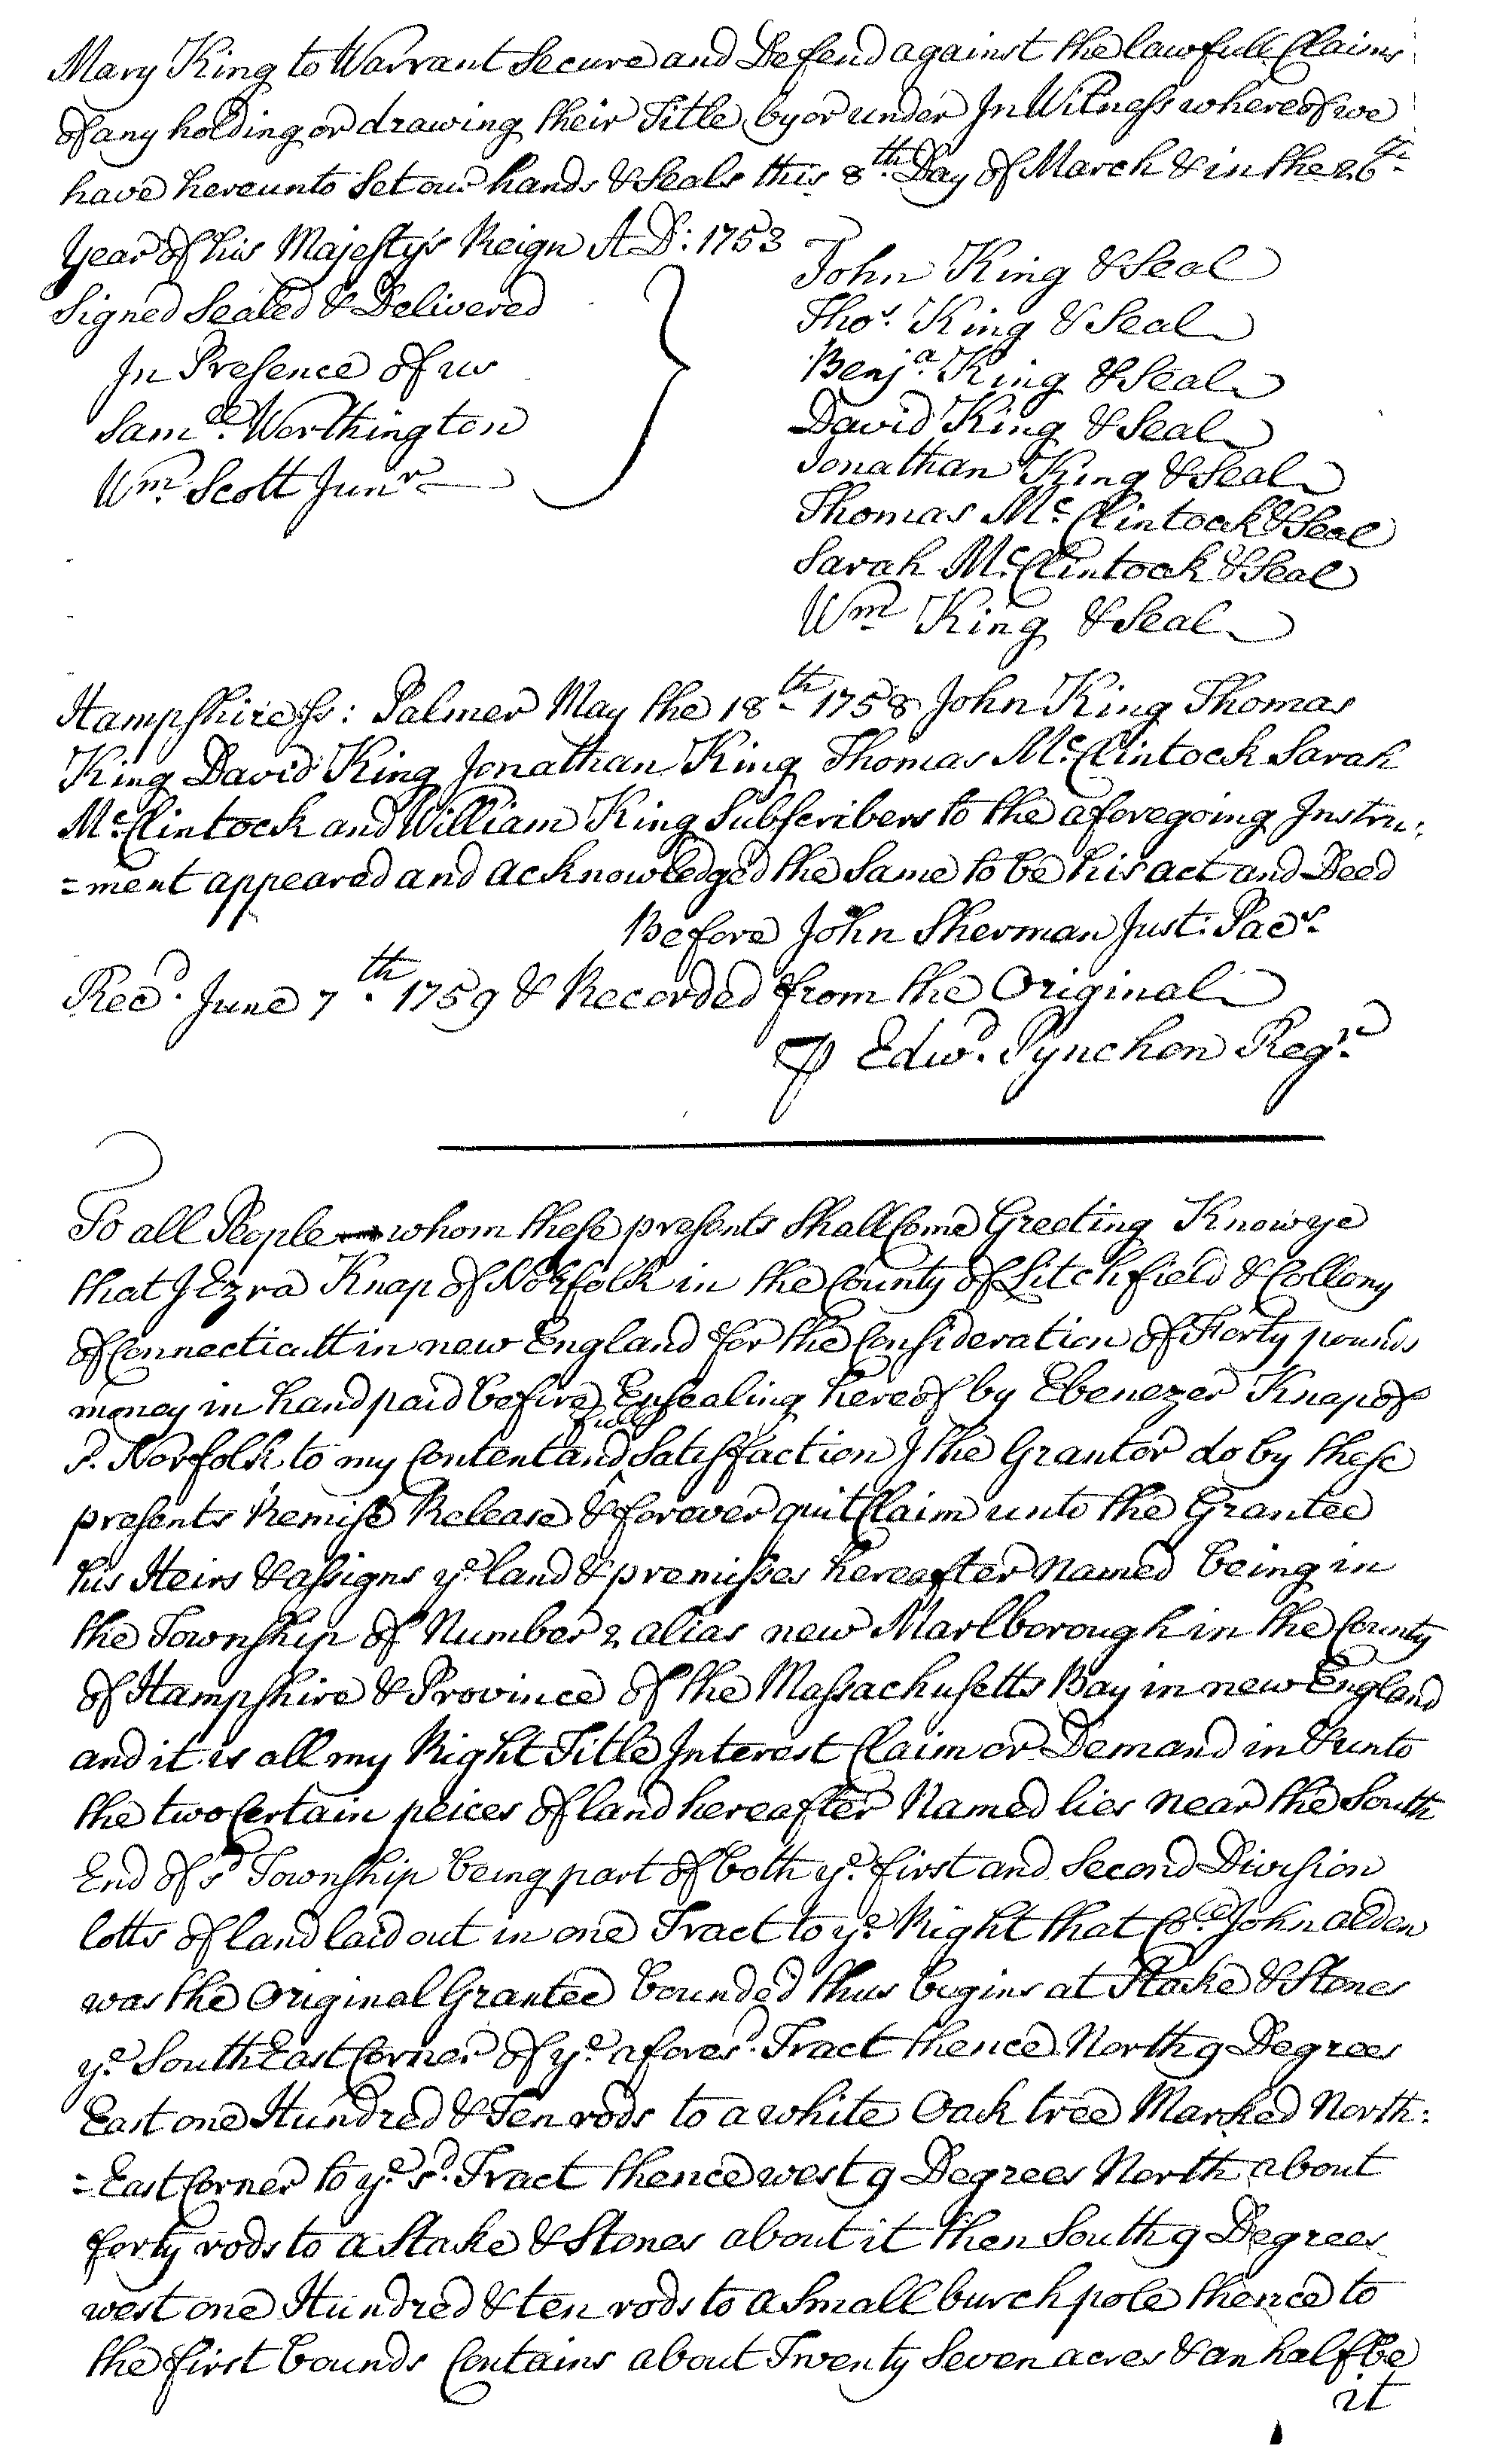 Mary King to Warrant Secure and Defend against the lawfull Claims
of any holding or drawing their Title by or under In Witness whereof we
have hereunto Set our hands & Seals this 8th. Day of March & in the 26th
Year of his Majesty's Reign A D: 1753
Signed Sealed & Delivered
In Presence of us
Samll. Worthington
Wm. Scott Junr.
John King & Seal
Thos. King & Seal
Benja. King & Seal
David King & Seal
Jonathan King & Seal
Thomas Mc.Clintock & Seal
Sarah Mc.Clintock & Seal
Wm. King & Seal
Hampshire Ss: Palmer May the 18th. 1758 John King Thomas
King David King Jonathan King Thomas Mc.Clintock Sarah
Mc.Clintock and William King Subscribers to the aforegoing Instru:
=ment appeared and acknowledged the Same to be his act and Deed
Before John Sherman Just: Paes.
Recd. June 7th. 1759 & Recorded from the Original
⅌ Edwd. Pynchon Regr.
To all People whom these presents Shall Come Greeting Know ye
that I Ezra Knap of Norfolk in the County of Litchfield & Collony
of Connecticutt in new England for the Consideration of Forty pounds
money in hand paid before Ensealing hereof by Ebenezer Knap of
s. Norfolk to my Content and full Satisfaction I the Grantor do by these
presents Remise Release & forever quit Claim unto the Grantee
his Heirs & assigns ye. land & premisses hereafter Named being in
the Township of Number 2 alias new Marlborough in the County
of Hampshire & Province of the Massachusetts Bay in new England
and it is all my Right Title Interest Claim or Demand in & unto
the two Certain peices of land hereafter Named lies near the South
End of sd Township being part of both ye. first and Second Division
lotts of land laid out in one Tract to ye. Right that Coll. John alden
was the Original Grantee bounded thus begins at Stake & Stones
ye. South East Corner of ye. afores'd. Tract thence North 9 Degrees
East one Hundred & Ten rods to a white Oack tree Marked North:
=East Corner to ye. sd. Tract thence west 9 Degrees North about
forty rods to a Stake & Stones about it then South 9 Degrees
west one Hundred & ten rods to a Small burch pole thence to
the first bounds Contains about Twenty Seven acres & an half be
it